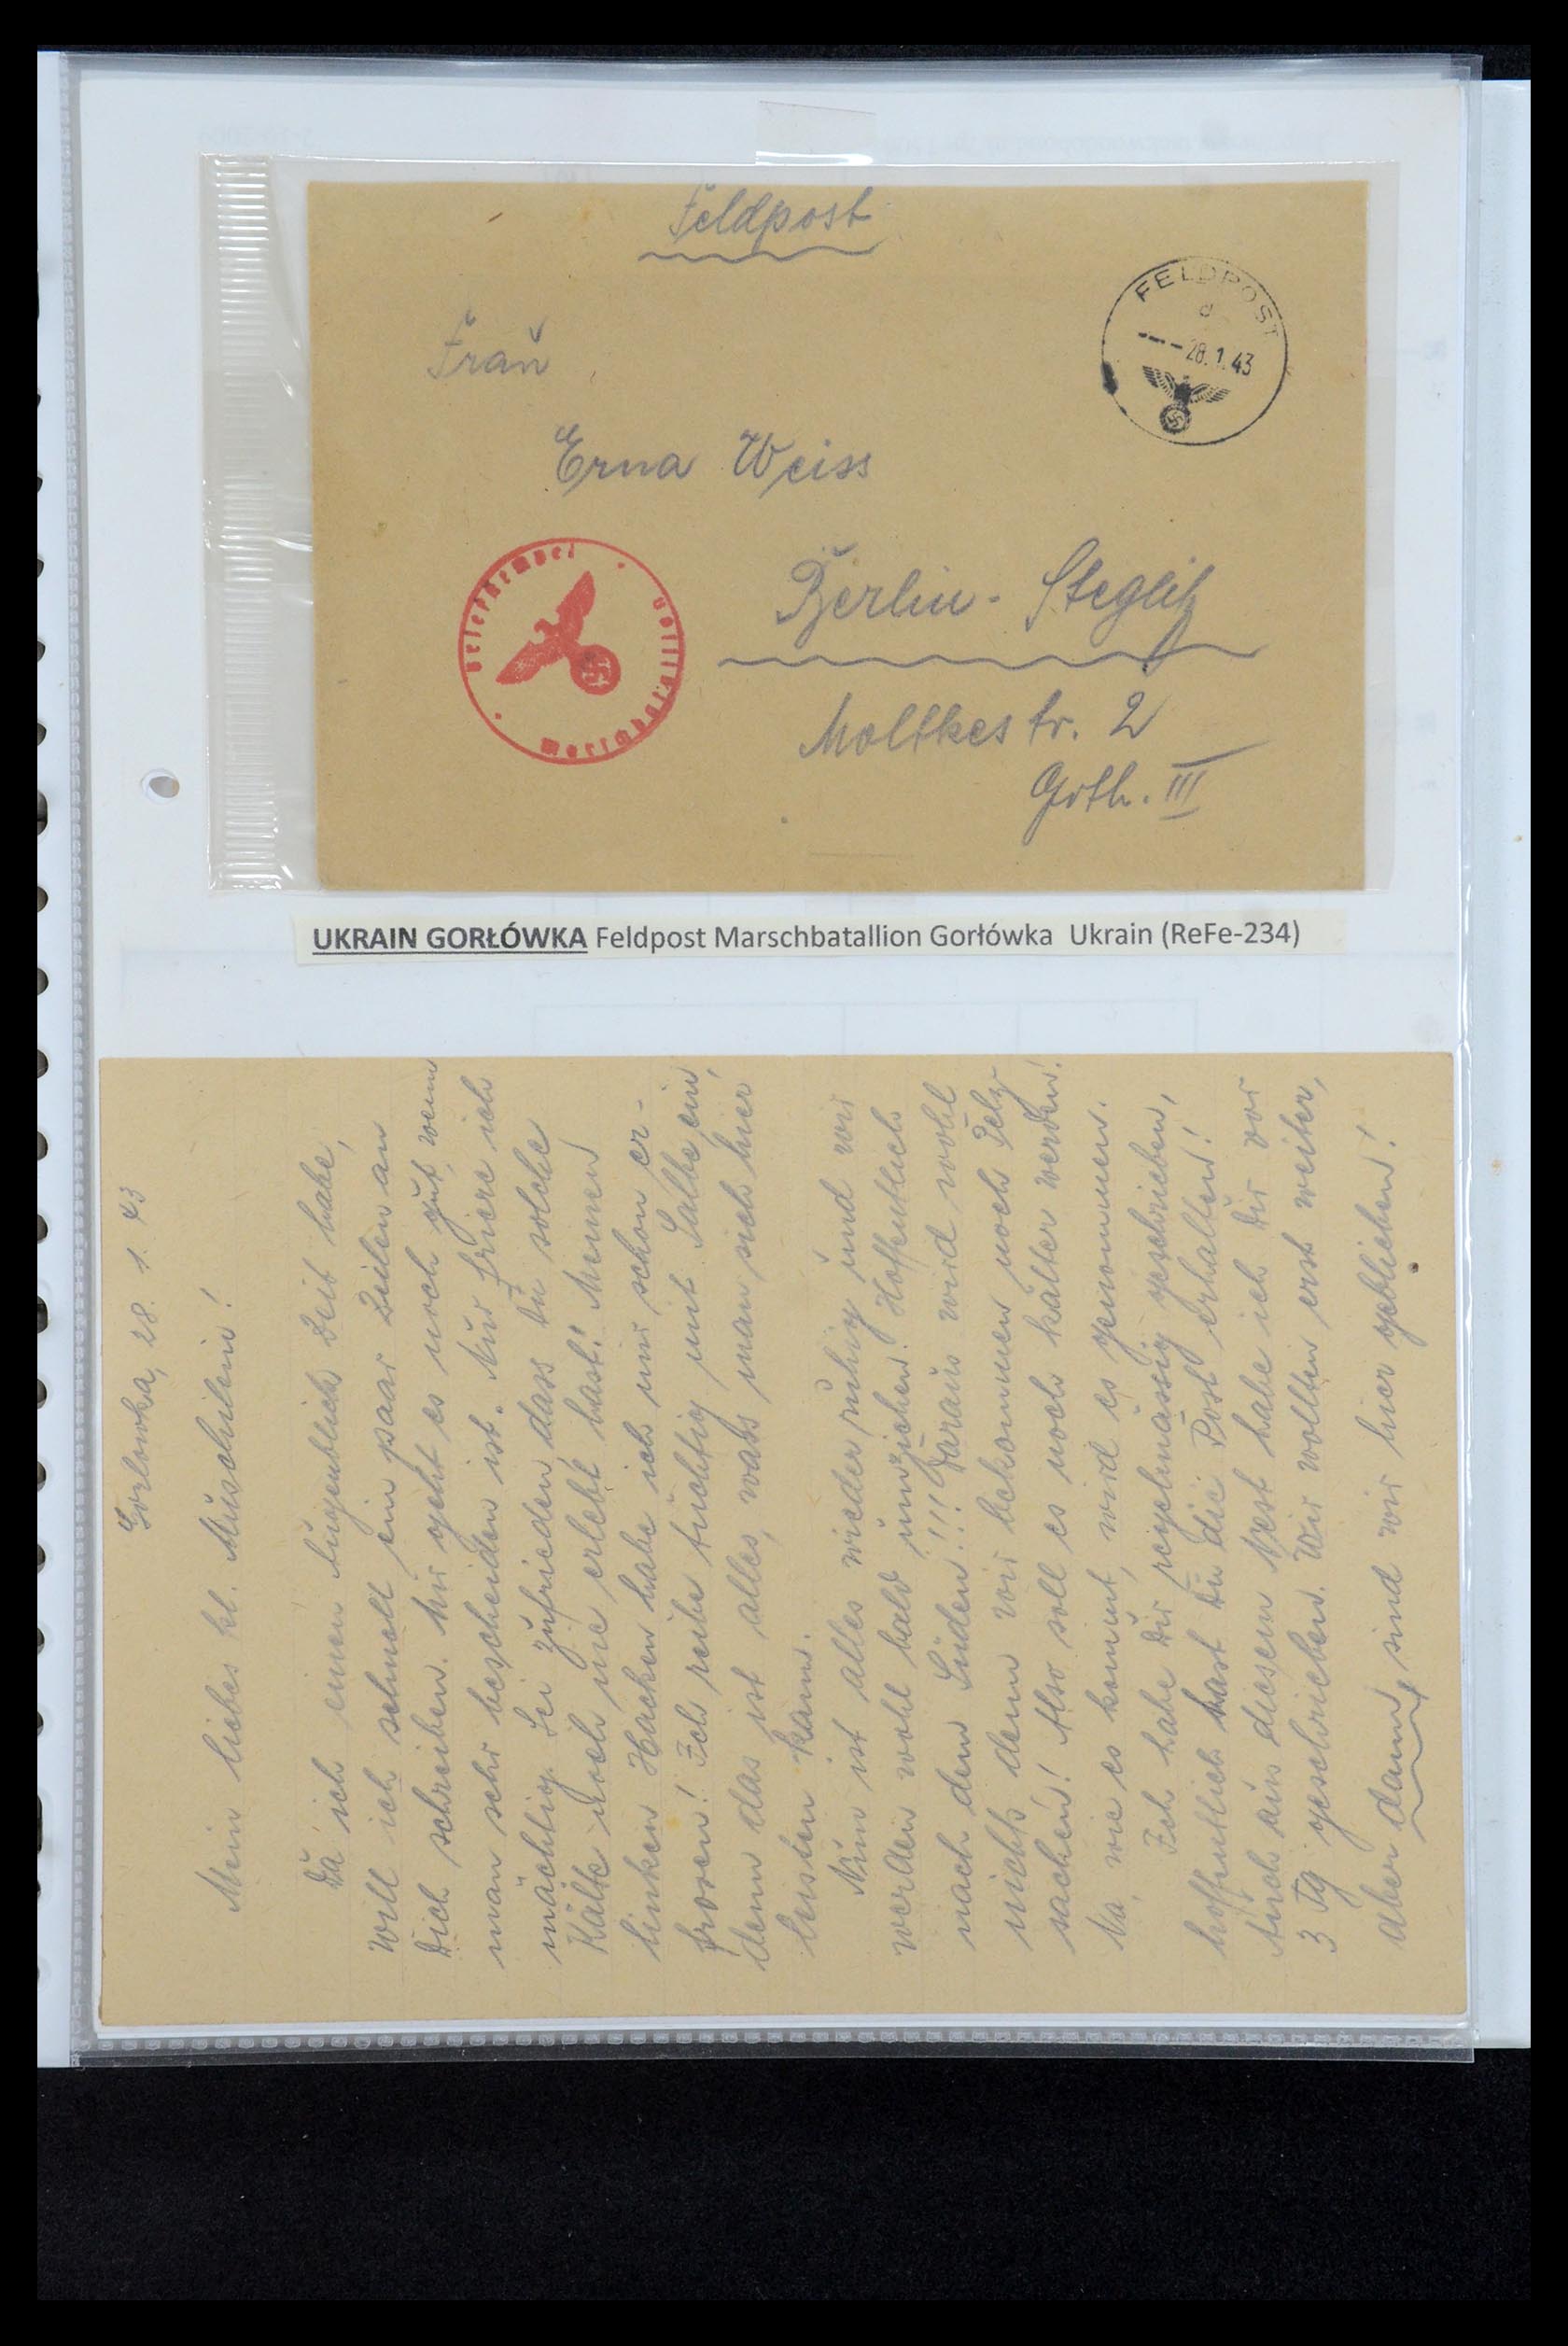 Feldpost
FELDPOST
d
---28.1.43
Frau
Erna Weiss
Berlin-Steglitz
Briefstempel
Marschbataillon
Moltkestr. 2
Grth. III
UKRAIN GORŁÓWKA Feldpost Marschbatallion Gorłówka Ukrain (ReFe-234)
Gorlowka, 28. 1. 43
Mein liebes kl. Muschilein!
Da ich einen Augenblick Zeit habe,
will ich schnell ein paar Zeilen an
Dich schreiben. Mir geht es noch gut, wenn
man sehr bescheiden ist. Nur friere ich
mächtig. Sei zufrieden, dass Du solche
Kälte noch nie erlebt hast! Meinen
linken Hacken habe ich mir schon er-
froren! Ich reibe tüchtig mit Salbe ein,
denn das ist alles, was man sich hier
leisten kann.
Nun ist alles wieder ruhig und wir
werden wohl bald umziehen. Hoffentlich
nach dem Süden!!! Daraus wird wohl
nichts denn wir bekommen noch Pelz-
sachen! Also soll es noch kälter werden!
Na, wie es kommt, wird es genommen.
Ich habe Dir regelmässig geschrieben,
hoffentlich hast Du die Post erhalten!
Auch aus diesem Nest habe ich Dir vor
3 Tg geschrieben. Wir wollten erst weiter,
aber dann sind wir hier geblieben!